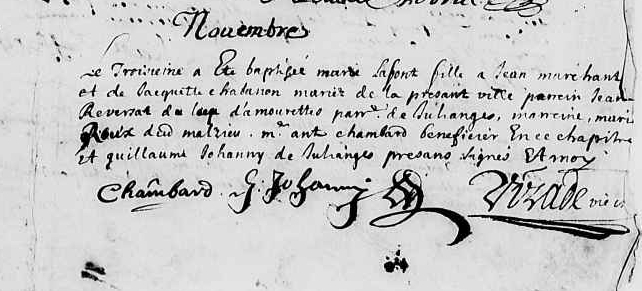 Novembre
Le Troisieme a Eté baptisée marie Lafont fille a Jean marchant
et de Jacquette chabanon mariez de la presant ville parrein Jean
Reversat du lieu d'amourettes parr. de Julianges, mareine, marie
Roux dud malzieu. mr. ant chambard beneficier En ce chapitre
et guillaume Johanny de Julianges presans signes Et moy
Chambard G. Johanny